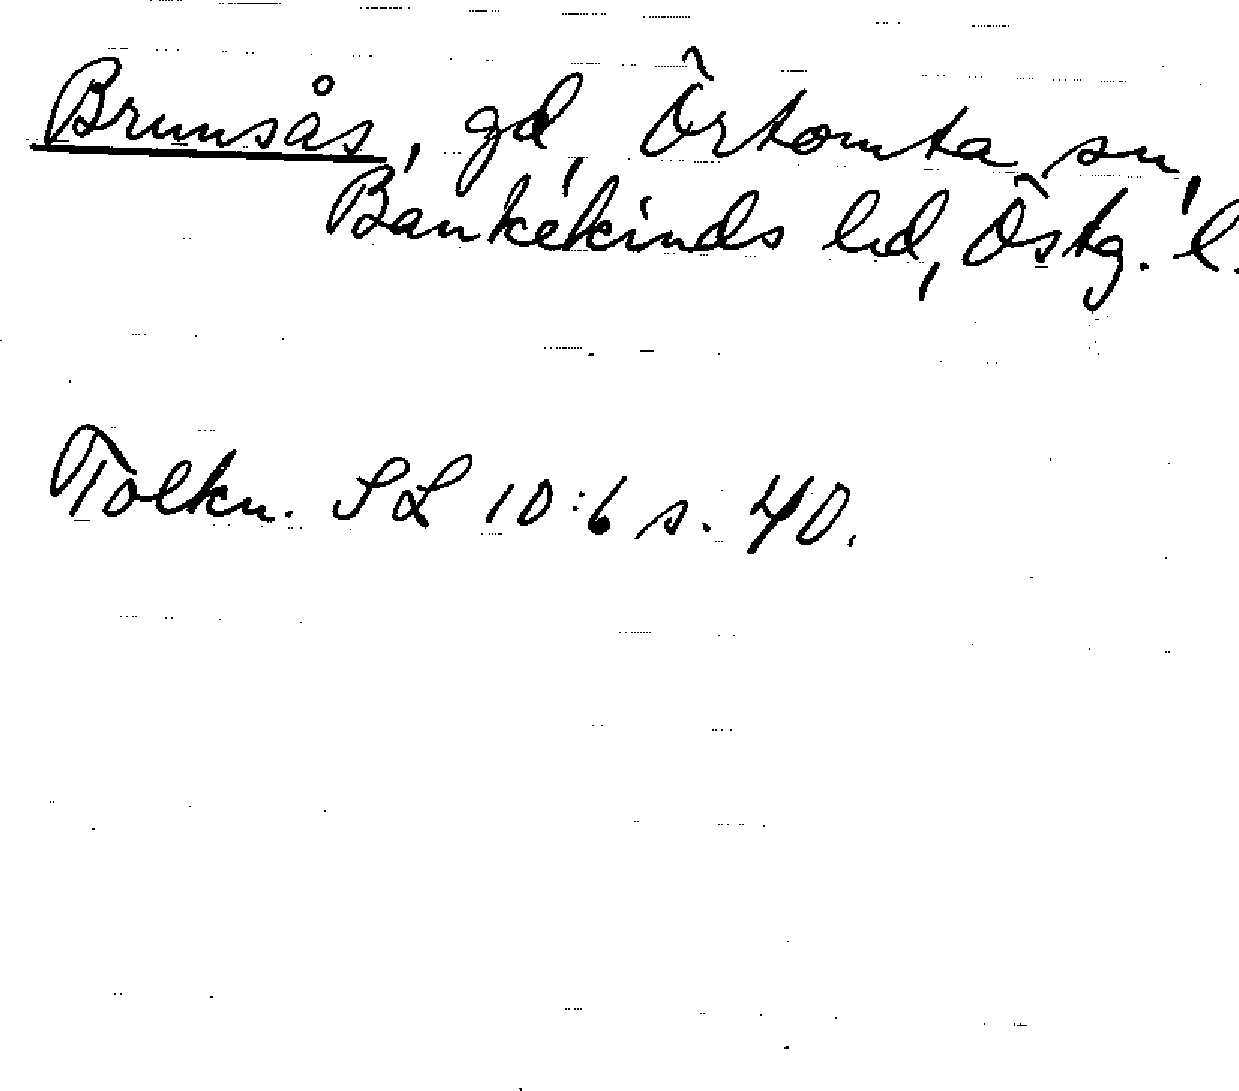 Brunsås, gd, Örtomta sn,
Bankekinds hd, Östg. l.
Tolkn. SL 10:6 s. 40.